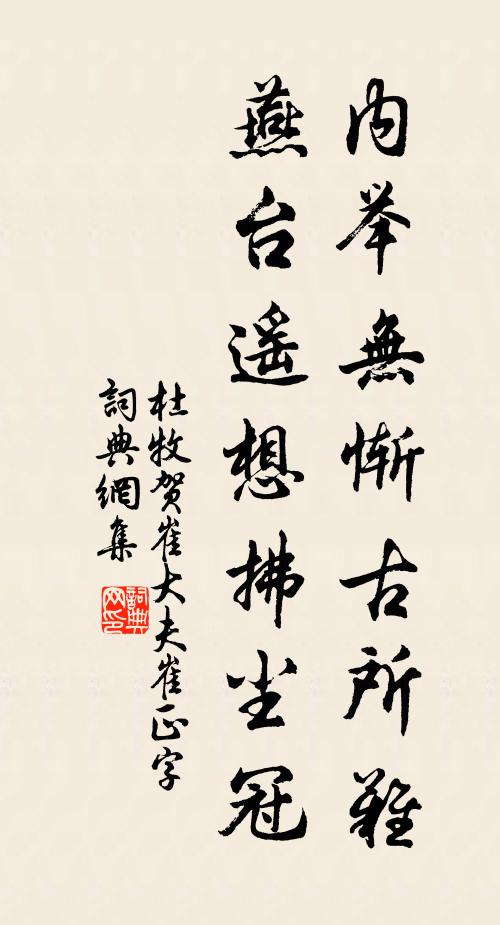 内举無惭古所難
燕台遥想拂尘冠
杜牧贺崔大夫崔正字
詞典網集
詞典网印